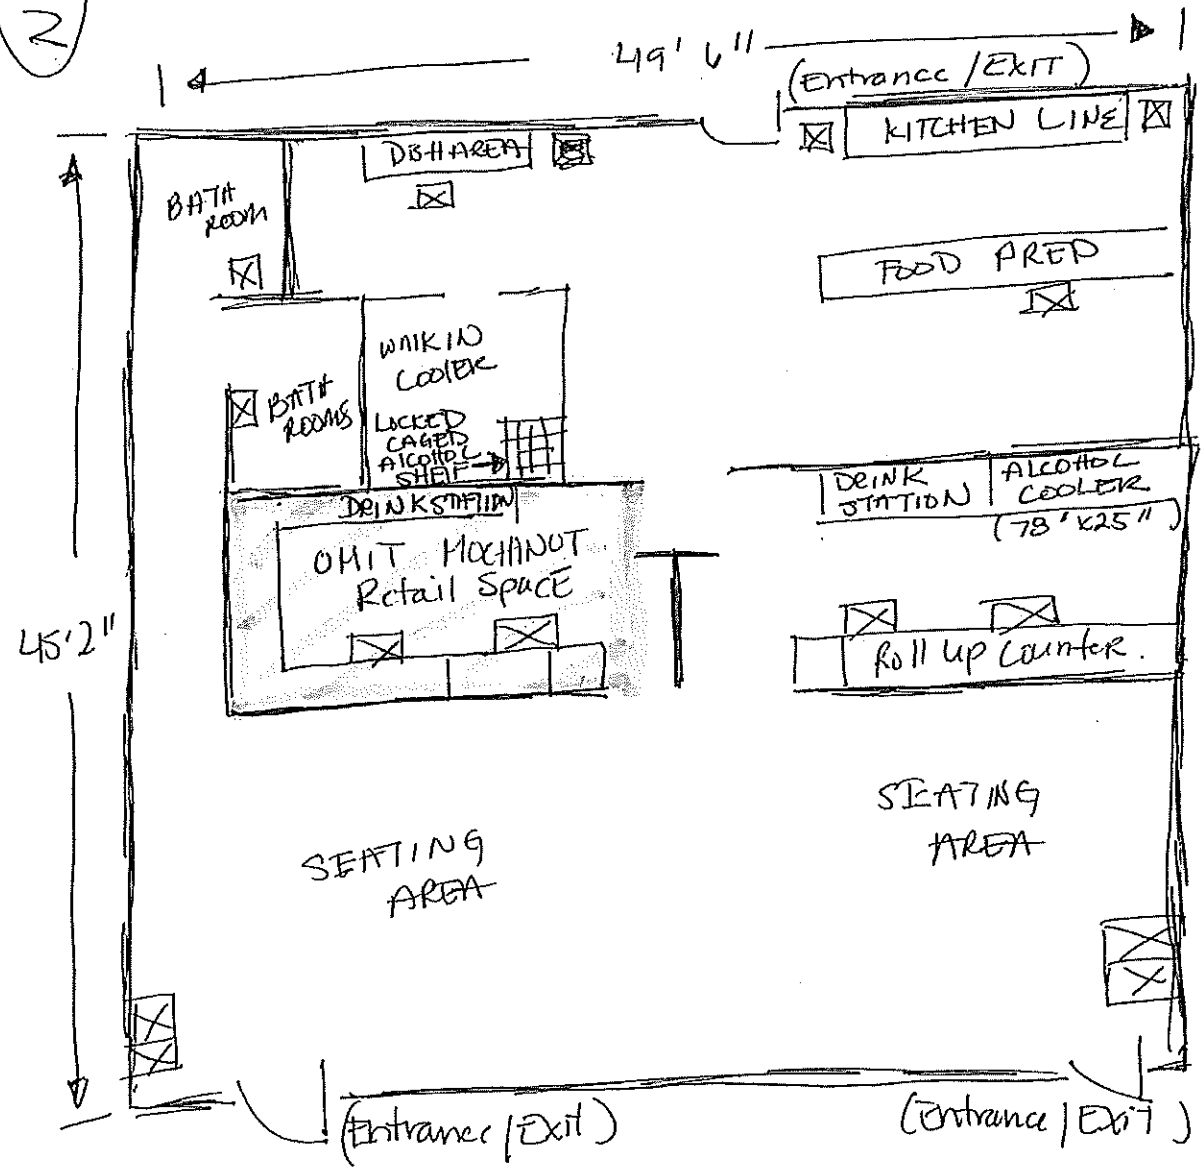 2
49' 6"
(Entrance / EXIT)
KITCHEN LINE
DBH AREA
BATH
ROOM
FOOD PREP
WALK IN
COOLER
BATH
ROOMS
LOCKED
CAGED
ALCOHOL
SHELF
DRINK STATION
DRINK
STATION
ALCOHOL
COOLER
(78"X25")
OMIT MOCHANUT
Retail Space
45'2"
Roll Up Counter.
SEATING
AREA
SEATING
AREA
(Entrance / Exit)
(Entrance / EXIT)